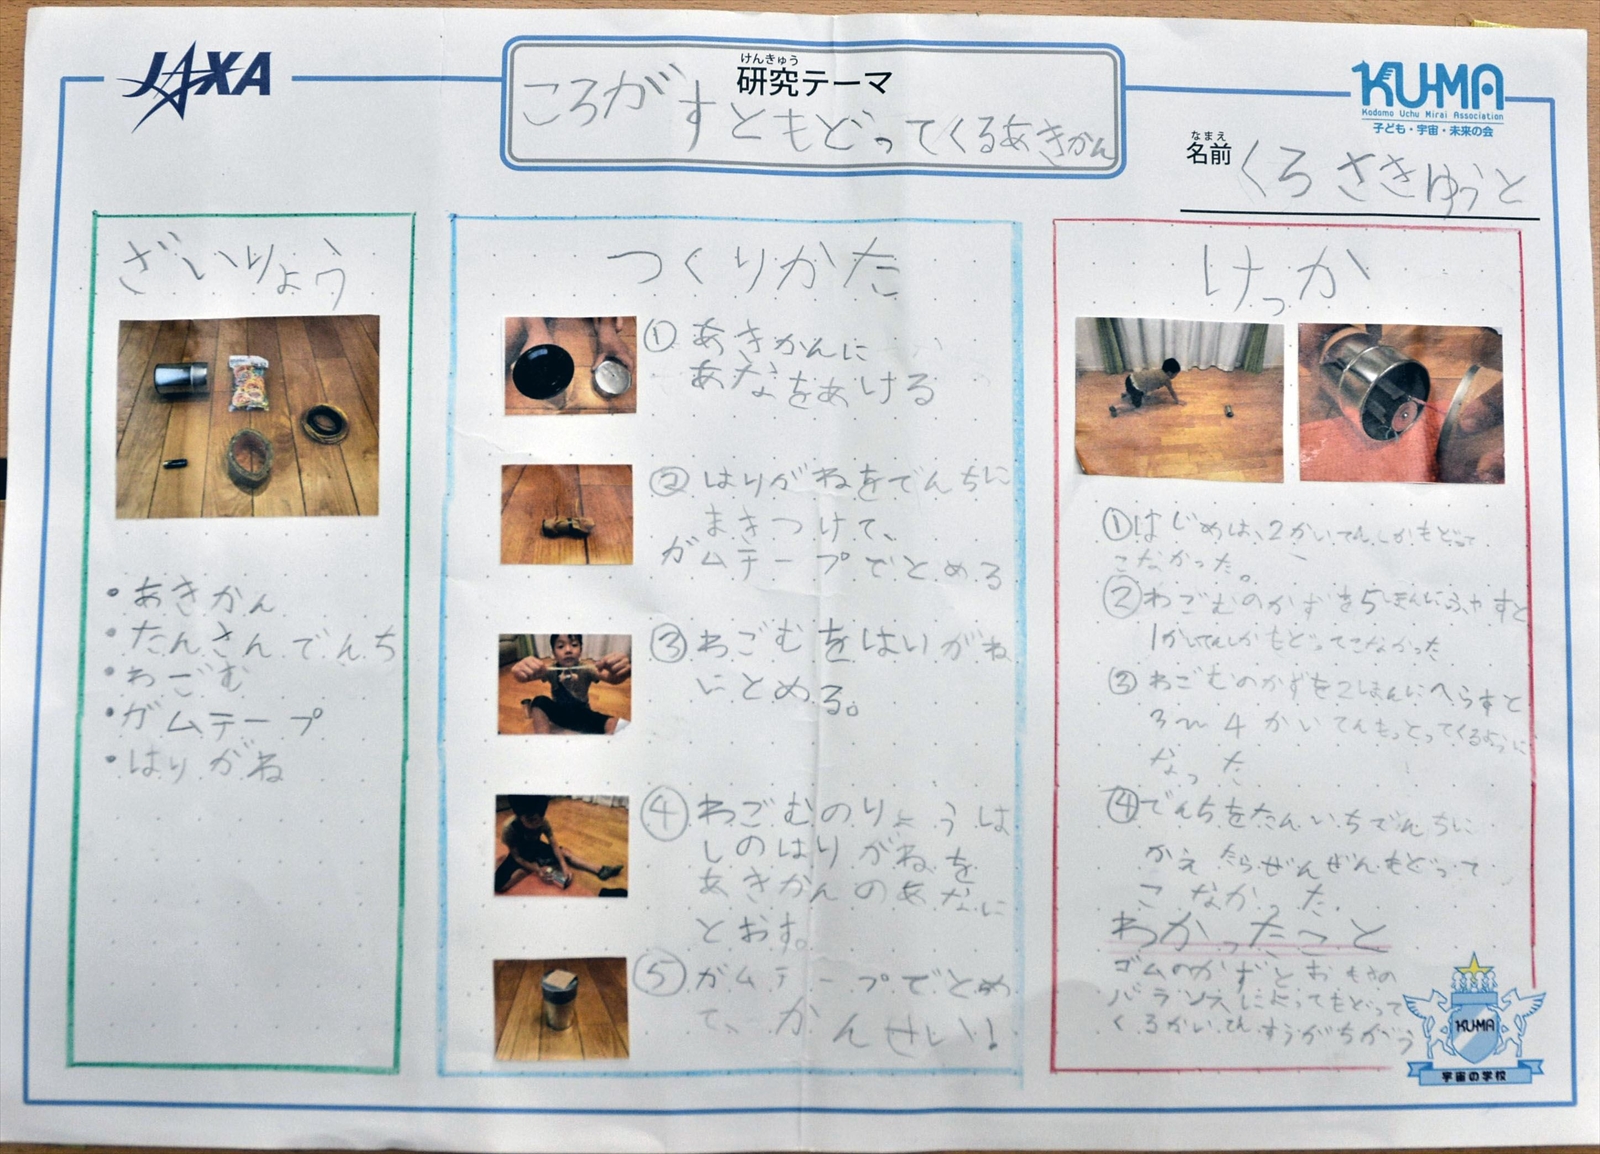 JAXA
けんきゅう
研究テーマ
ころがすともどってくるあきかん
KU-MA
Kodomo Uchu Mirai Association
子ども・宇宙・未来の会
なまえ
名前
くろさきゆうと
ざいりょう
・あきかん
・たんさんでんち
・わごむ
・ガムテープ
・はりがね
つくりかた
①あきかんに
あなをあける
②はりがねをでんちに
まきつけて、
ガムテープでとめる
③わごむをはりがね
にとめる。
④わごむのりょうは
しのはりがねを
あきかんのあなに
とおす。
⑤ガムテープでとめ
て、かんせい!
けっか
①はじめは、2かいてんしかもどって
こなかった。
②わごむのかずを5ほんにふやすと
1かいてんしかもどってこなかった
③わごむのかずを2ほんにへらすと
3〜4かいてんもどってくるように
なった
④でんちをたんいちでんちに
かえたらぜんぜんもどって
こなかった
わかったこと
ゴムのかずとおもさの
バランスによってもどって
くるかいてんすうがちがう
KU-MA
宇宙の学校